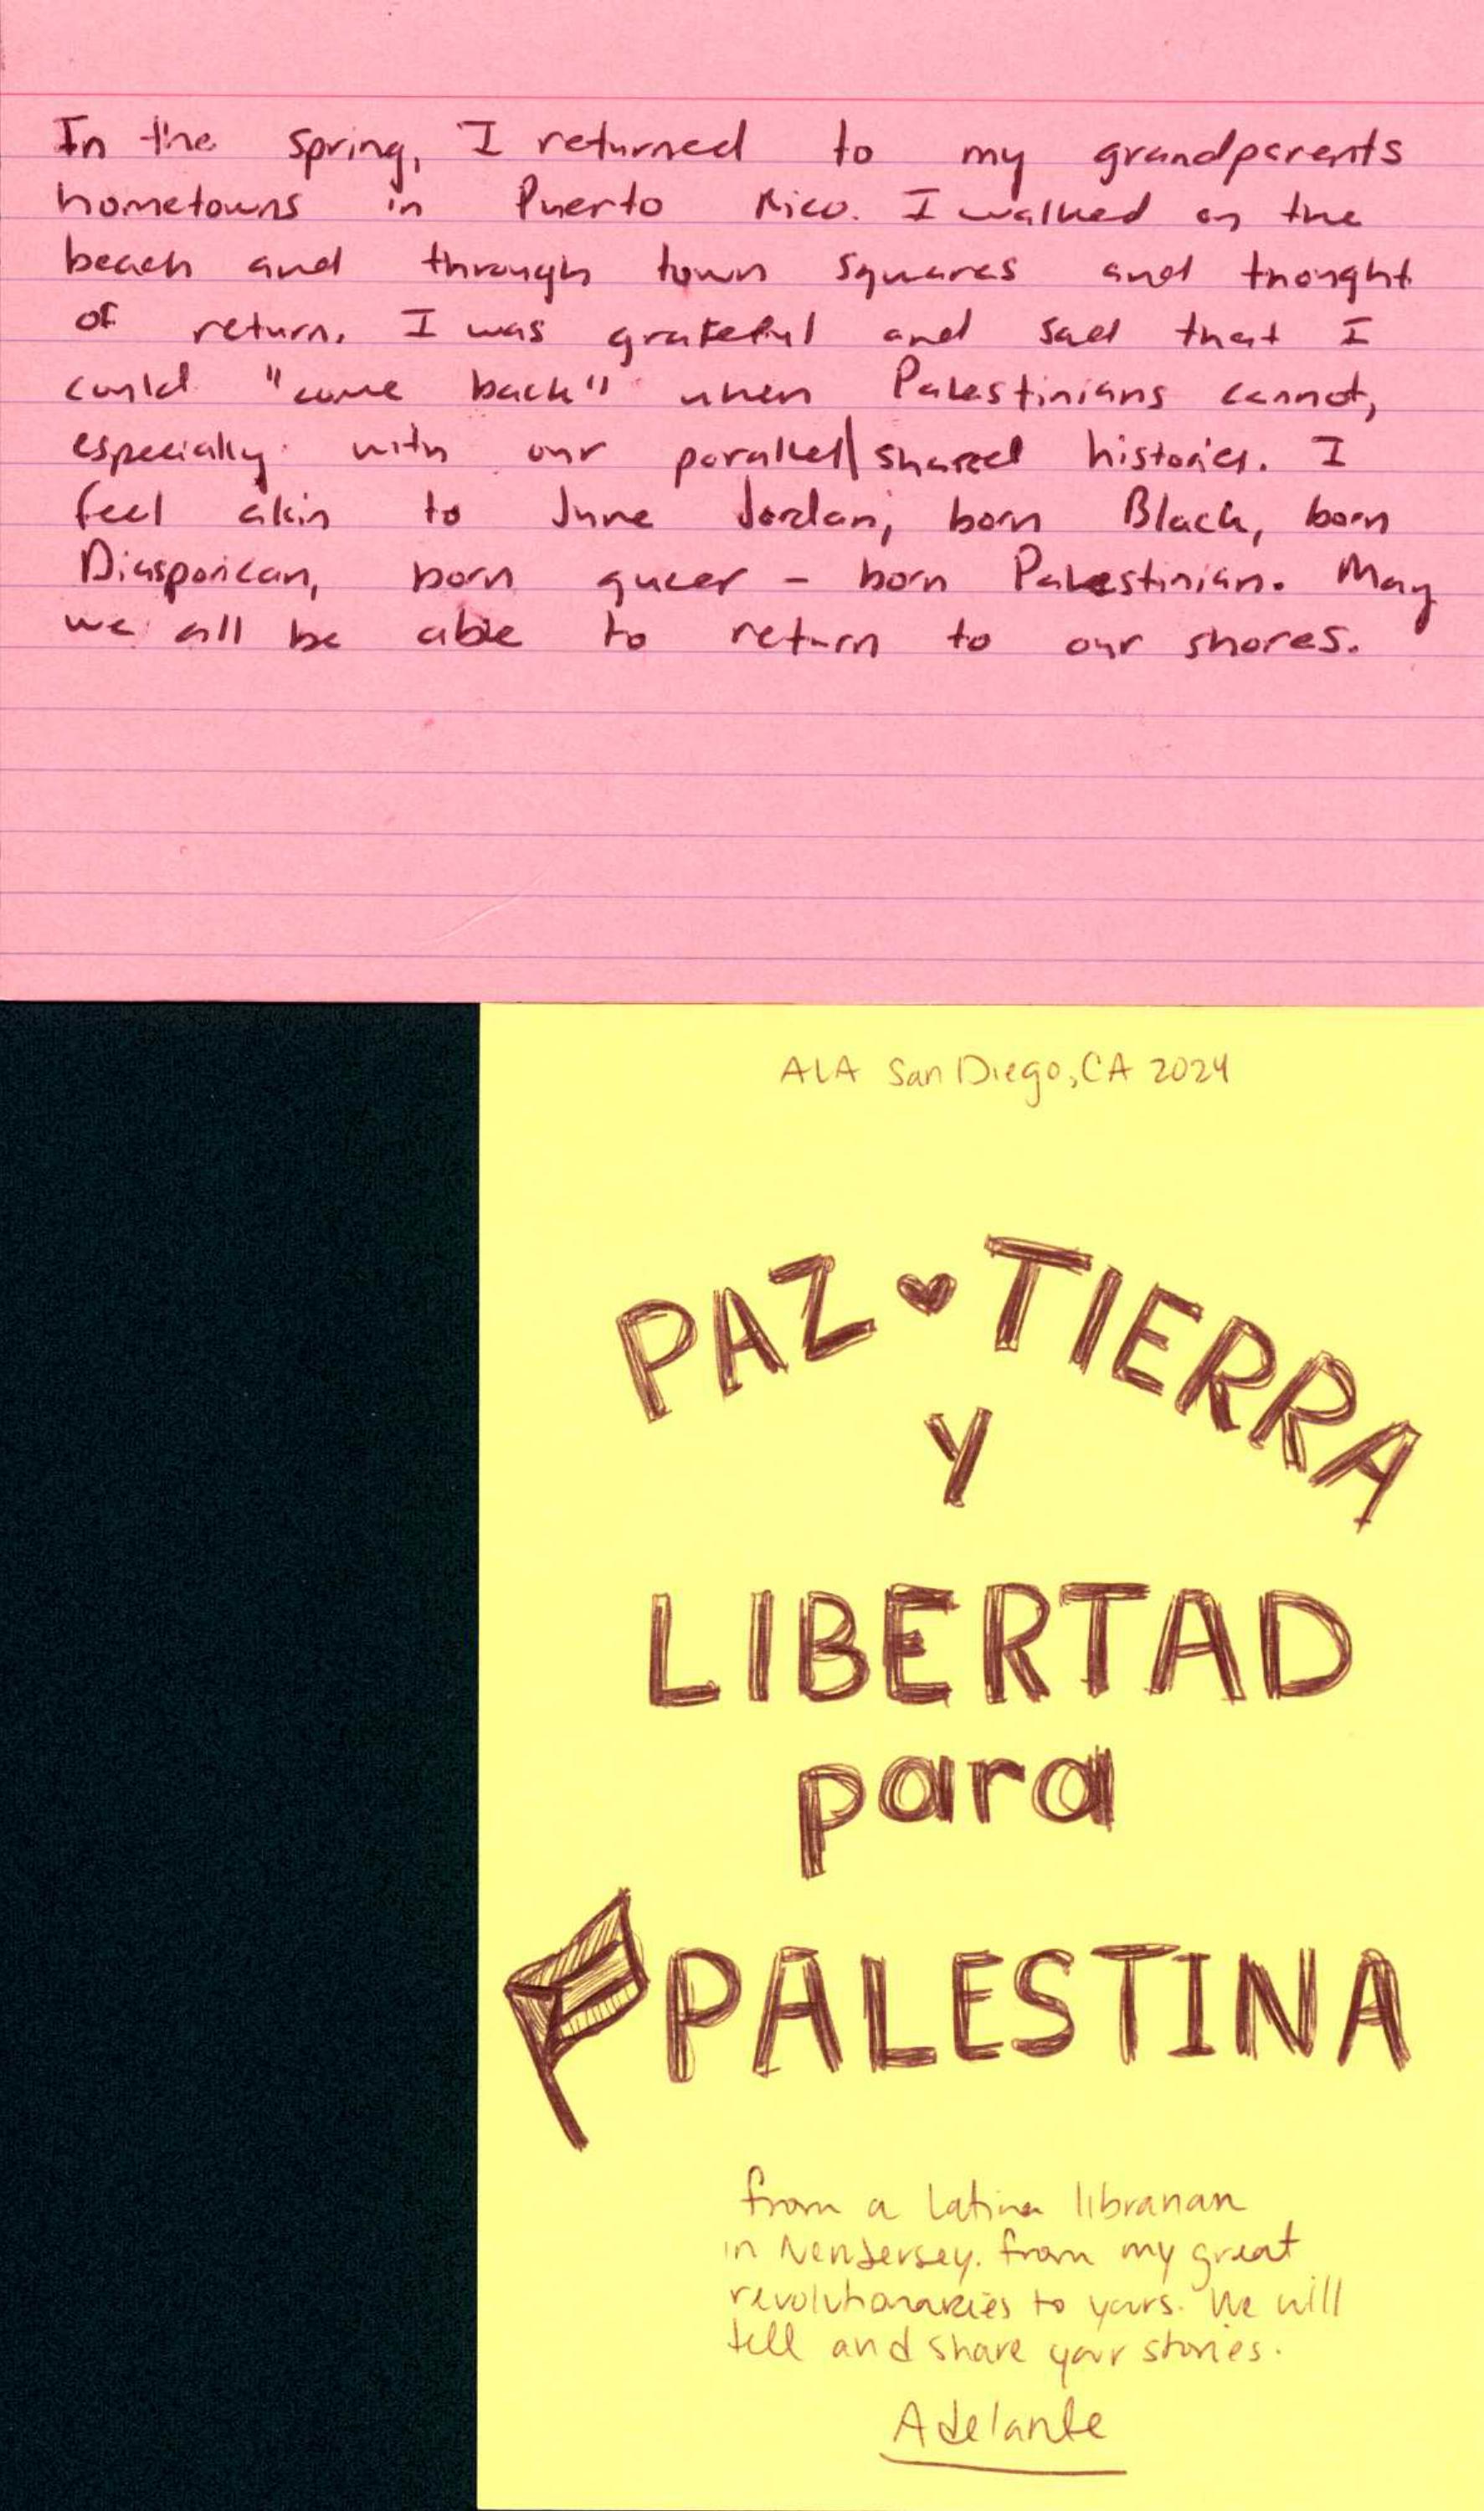 In the spring, I returned to my grandparents
hometowns in Puerto Rico. I walked on the
beach and through town squares and thought
of return. I was grateful and sad that I
could "come back" when Palestinians cannot,
especially with our parallel/shared histories. I
feel akin to June Jordan, born Black, born
Diasporican, born queer - born Palestinian. May
we all be able to return to our shores.
ALA San Diego, CA 2024
PAZ ♥ TIERRA
Y
LIBERTAD
para
PALESTINA
from a Latina librarian
in New Jersey. From my great
revolutionaries to yours. We will
tell and share your stories.
Adelante